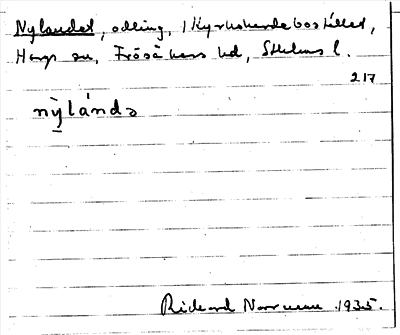 Nylandet, odling, i Kyrkoherdebostället,
Hargs sn, Frösåkers hd, Sthlms l.
217
nỳlánda
Rickard Norrmene 1935.